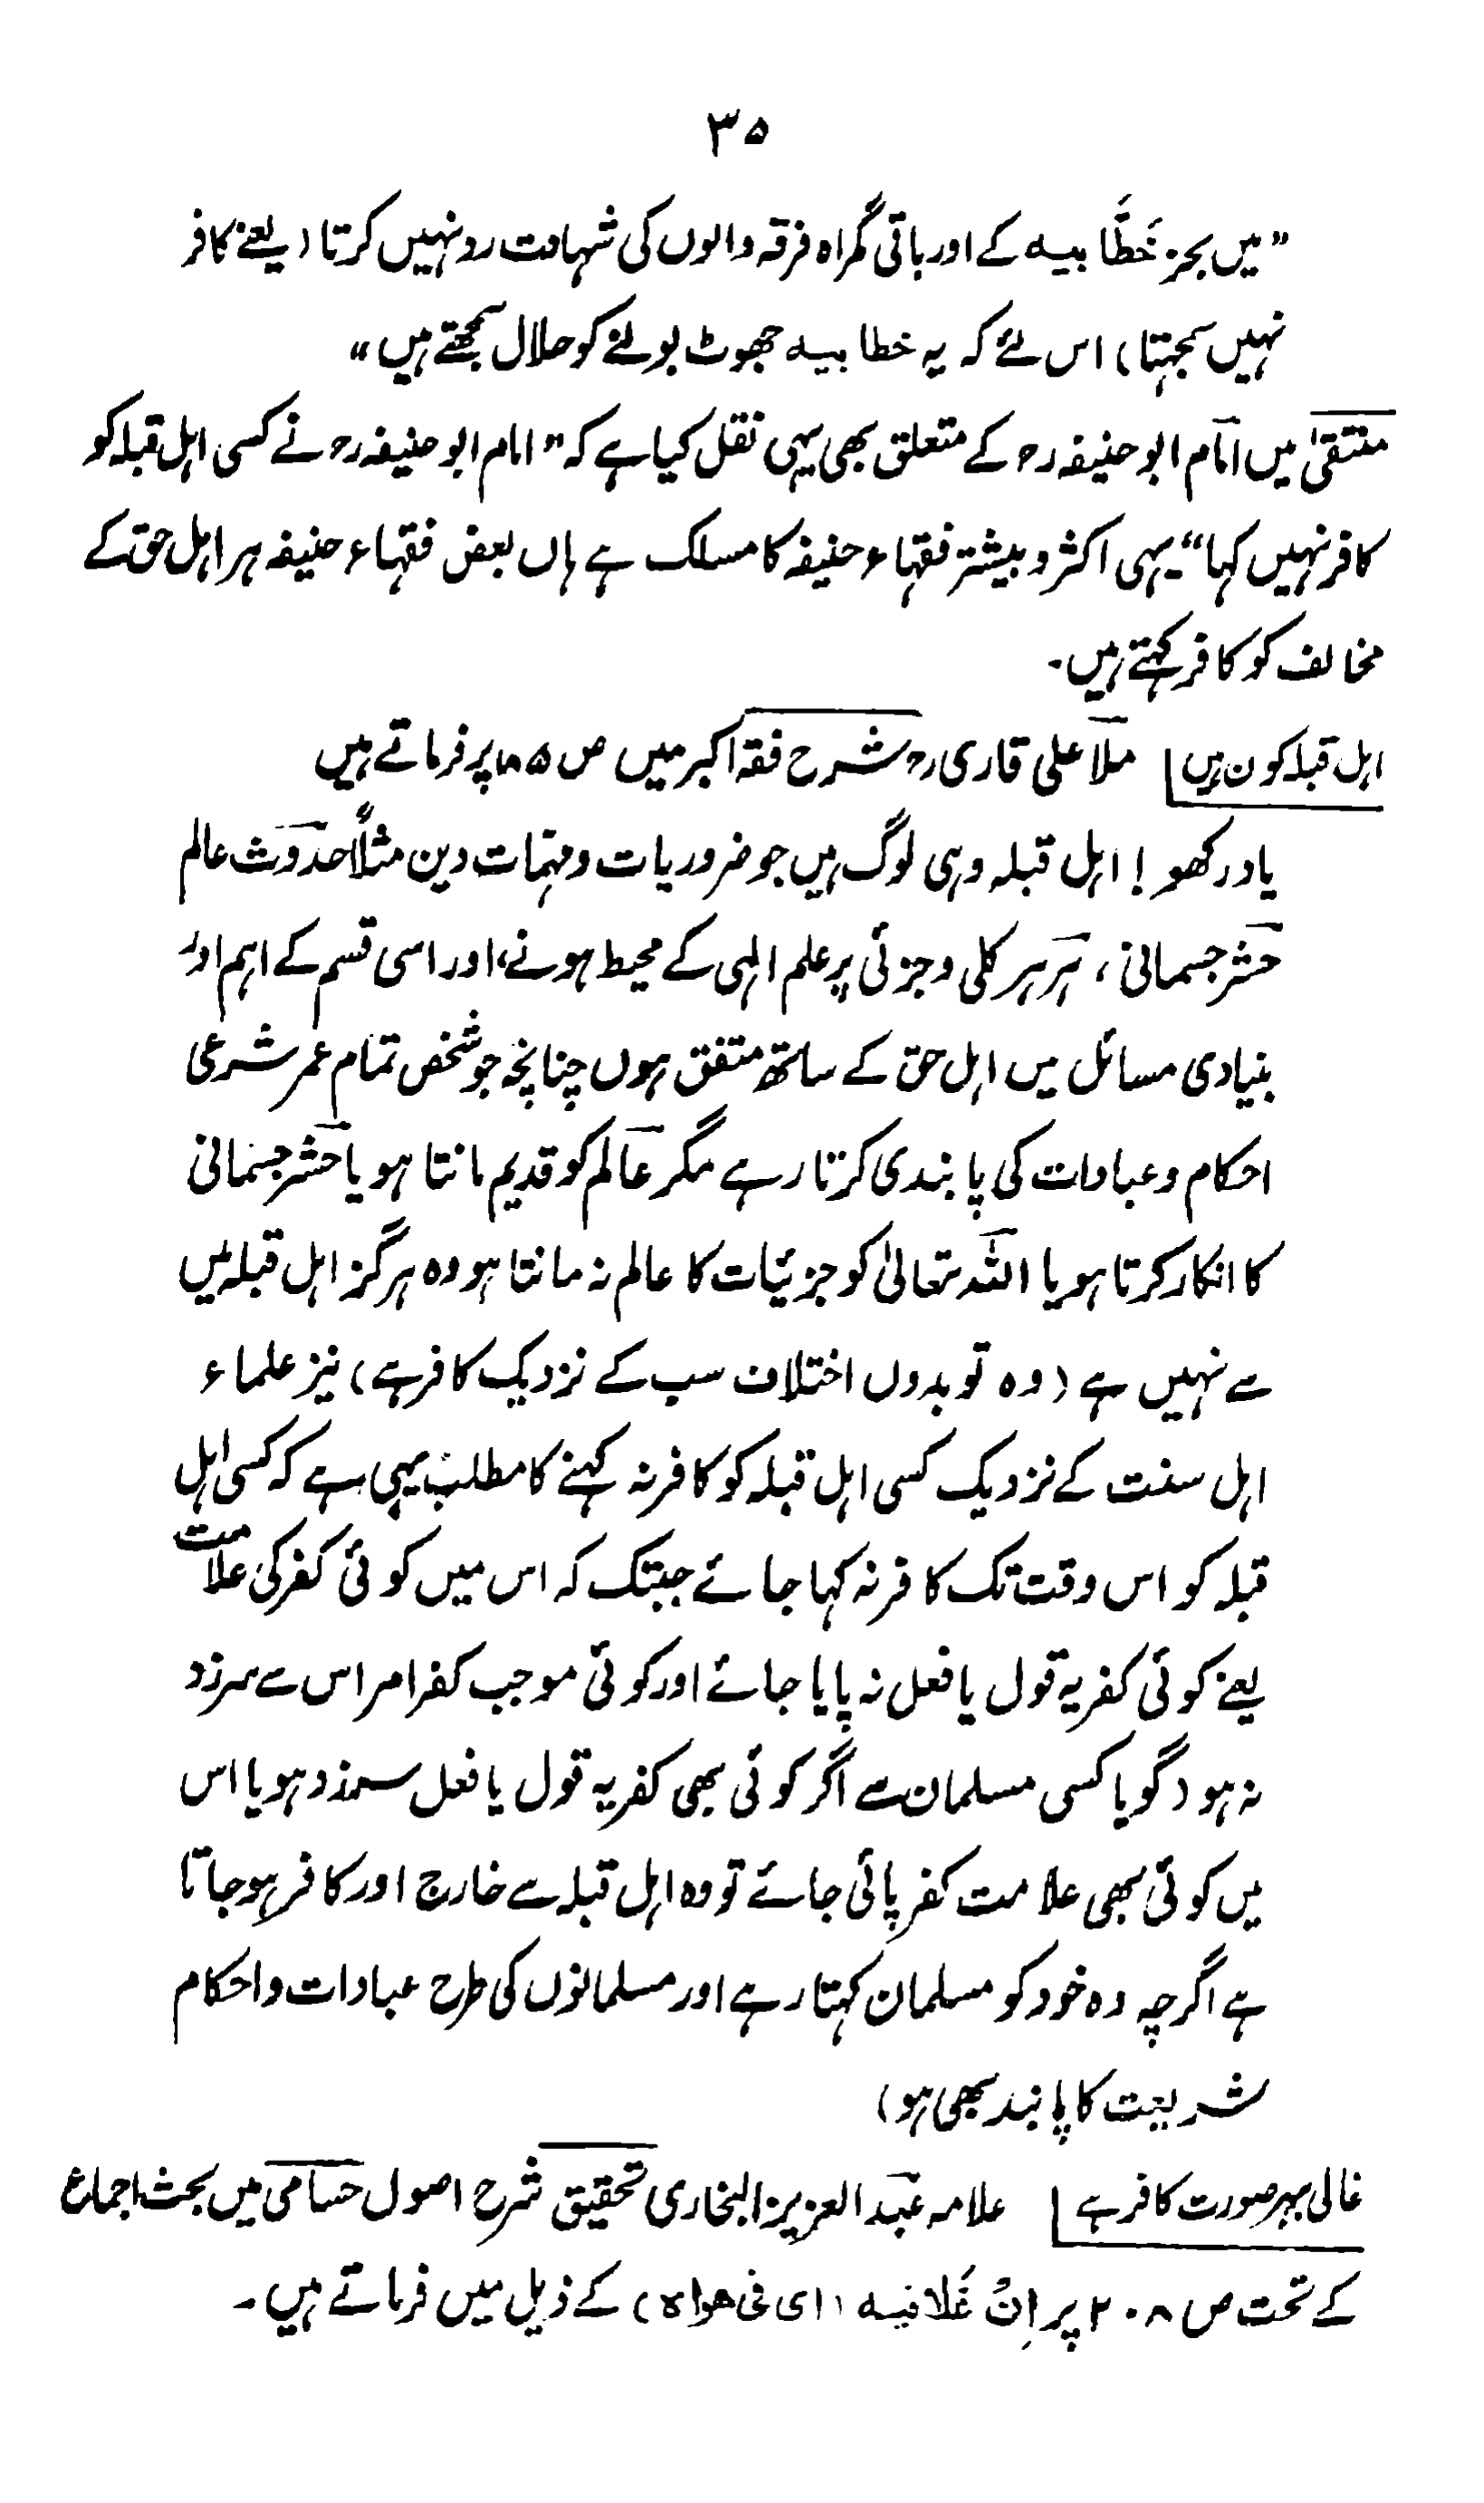 ۳۵
”میں بجز خَطَّابیہ کے اور باقی گمراہ فرقہ والوں کی شہادت رد نہیں کرتا (یعنے کافر
نہیں سمجھتا) اس لئے کہ یہ خطابیہ جھوٹ بولنے کو حلال سمجھتے ہیں“
منتقیٰ میں امام ابو حنیفہ رح کے متعلق بھی یہی نقل کیا ہے کہ ”امام ابو حنیفہ رح نے کسی اہل قبلہ کو
کافر نہیں کہا“ یہی اکثر و بیشتر فقہاء حنیفہ کا مسلک ہے ہاں بعض فقہاء حنیفہ ہر اہل حق کے
مخالف کو کافر کہتے ہیں۔
اہل قبلہ کون ہیں ملا علی قاری رح شرح فقہ اکبر میں ص پر فرماتے ہیں
یاد رکھو! اہل قبلہ وہی لوگ ہیں جو ضروریات و مہمّات دین مثلاً حدوث عالم
حشر جسمانی، ہر ہر کلی و جزئی پر علم الٰہی کے محیط ہونے، اور اسی قسم کے اہم اور
بنیادی مسائل میں اہل حق کے ساتھ متفق ہوں چنانچہ جو شخص تمام عمر شرعی
احکام و عبادات کی پابندی کرتا رہے مگر عالم کو قدیم مانتا ہو یا حشر جسمانی
کا انکار کرتا ہو یا اللہ تعالیٰ کو جزئیات کا عالم نہ مانتا ہو وہ ہرگز اہل قبلہ میں
سے نہیں ہے (وہ تو بدوں اختلاف سب کے نزدیک کافر ہے) نیز علماء
اہل سنت کے نزدیک کسی اہل قبلہ کو کافر نہ کہنے کا مطلب یہی ہے کہ کسی اہل
قبلہ کو اس وقت تک کافر نہ کہا جائے جبتک کہ اس میں کوئی کفر کی علامت
یعنے کوئی کفریہ قول یا فعل نہ پایا جائے اور کوئی موجب کفر امر اس سے سرزد
نہ ہو (گویا کسی مسلمان سے اگر کوئی بھی کفریہ قول یا فعل سرزد ہو یا اس
میں کوئی بھی علامت کفر پائی جائے تو وہ اہل قبلہ سے خارج اور کافر ہو جاتا
ہے اگرچہ وہ خود کو مسلمان کہتا رہے اور مسلمانوں کی طرح عبادات و احکام
شریعت کا پابند بھی ہو)
غالی بہر صورت کافر ہے علامہ عبد العزیز البخاری تحقیق شرح اصول حسامی میں بحث اجماع
کے تحت ص ۲۰۸ پر اِنْ غَلَا فیہ (ای فی ھواہ) کے ذیل میں فرماتے ہیں۔